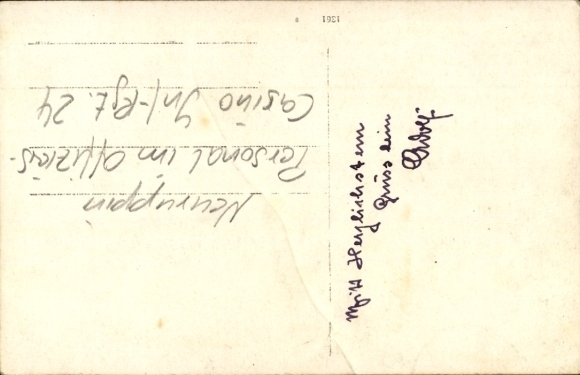 Neuruppin
Personal im Offiziers-
Casino Inf-Rgt. 24
Mitt Herzlichstem
Gruss dein
Adolf
1361